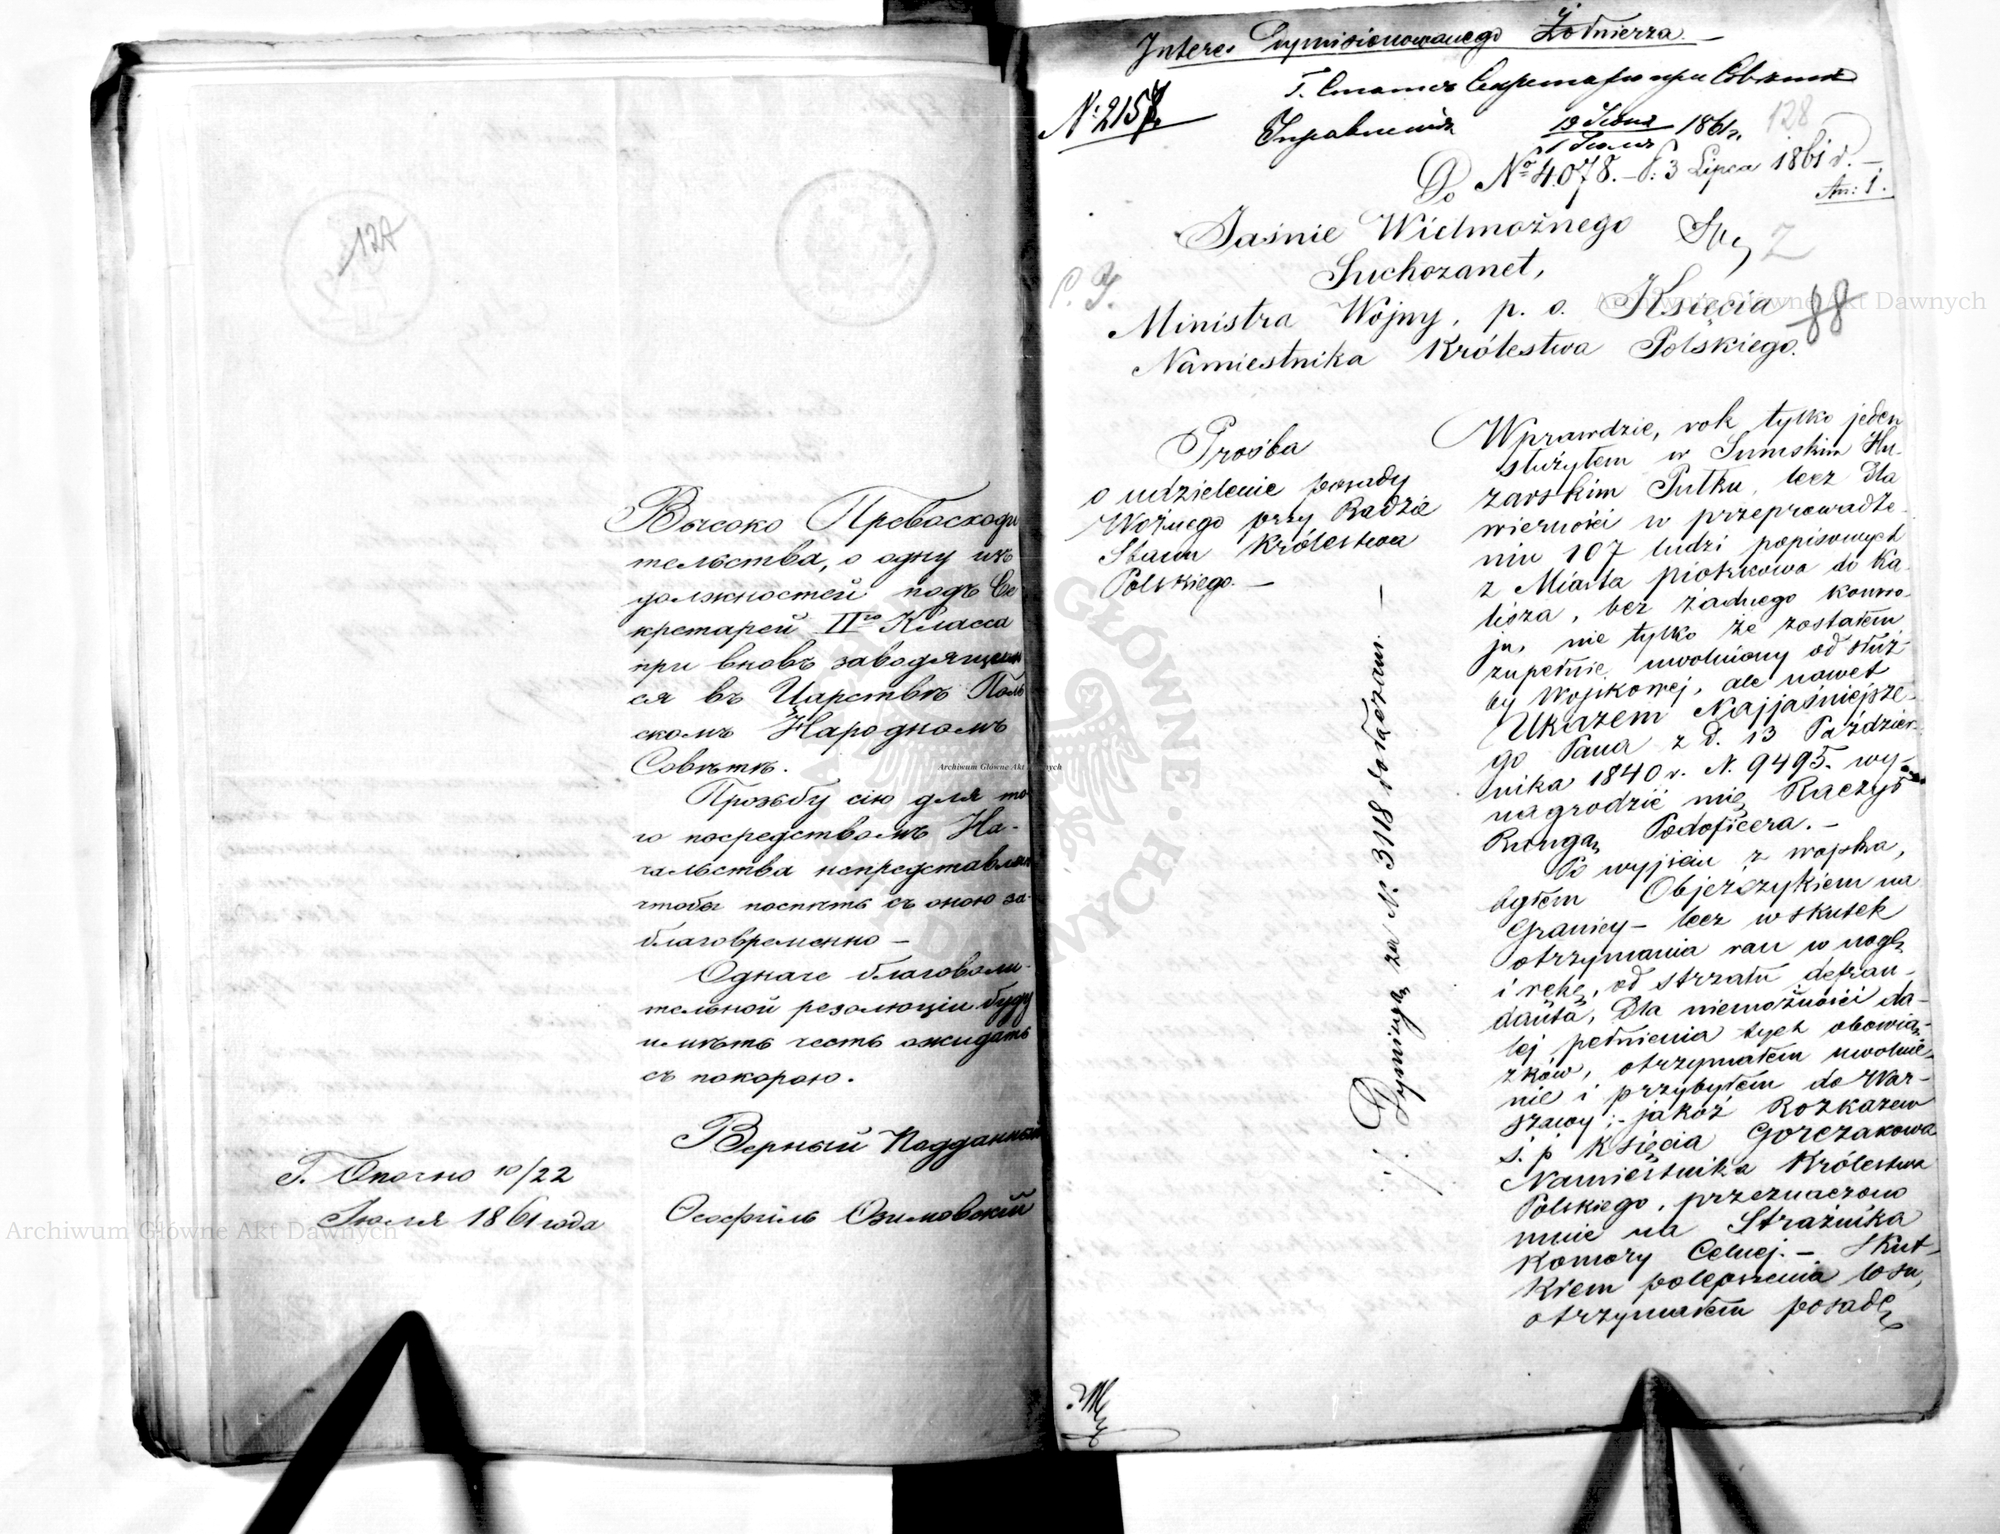 127
Высоко Превосходи
тельства, о одну изъ
должностей подъ Се
кретарей IIго Класса
при вновь заводящим
ся въ Царствѣ Поль
скомъ Народномъ
Совѣтѣ.
Прозьбу сію для то
го посредствомъ На-
чальства непредставляю
чтобы поспѣть съ оною за-
благовременно —
Одначе благоволи-
тельной резолюціи буду
имѣть честь ожидать
съ покорою.
Верный Подданный
Г. Опочно 10/22
Іюля 1861 года
Ѳеофиль Озимовскій
Interes Dymisionowanego Żołnierza. —
Г. Статсъ Секретарю при Совѣтѣ
Управленія 19 Іюня / 1 Іюля 1861 г.
128
№ 2157
Do № 4078. – d: 3 Lipca 1861 r. —
An: 1.
Jaśnie Wielmożnego
Suchozanet,
Ministra Wojny, p. o. Księcia
88
Namiestnika Królestwa Polskiego.
Prośba
o udzielenie posady
Woźnego przy Radzie
Stanu Królestwa
Polskiego. —
Wprawdzie, rok tylko jeden
służyłem w Sumskim Hu-
zarskim Pułku, lecz dla
wierności w przeprowadze-
niu 107 ludzi popisowych
z Miasta Piotrkowa do Ka-
lisza, bez żadnego konwo-
ju, nie tylko że zostałem
zupełnie uwolniony od służ-
by Wojskowej, ale nawet
Ukazem Najjaśniejsze-
go Pana z d. 13 Paździer-
nika 1840 r. N. 9495. wy-
nagrodzić mię Raczył
Rangą Podoficera. —
Po wyjściu z wojska,
byłem Objeszczykiem na
Granicy – lecz w skutek
otrzymania ran w nogę
i rękę, od strzału defrau-
danta, Dla niemożności da-
lej pełnienia tych obowią-
zków, otrzymałem uwolnie-
nie i przybyłem do War-
szawy; – jakoż Rozkazem
ś. p. Księcia Gorczakowa
Namiestnika Królestwa
Polskiego, przeznaczono
mnie na Strażnika
Komory Celnej. — Skut-
kiem polepszenia losu,
otrzymałem posadę
./. Dymisyą za N. 3118 dołączam. —
Archiwum Główne Akt Dawnych
Archiwum Główne Akt Dawnych
Archiwum Główne Akt Dawnych